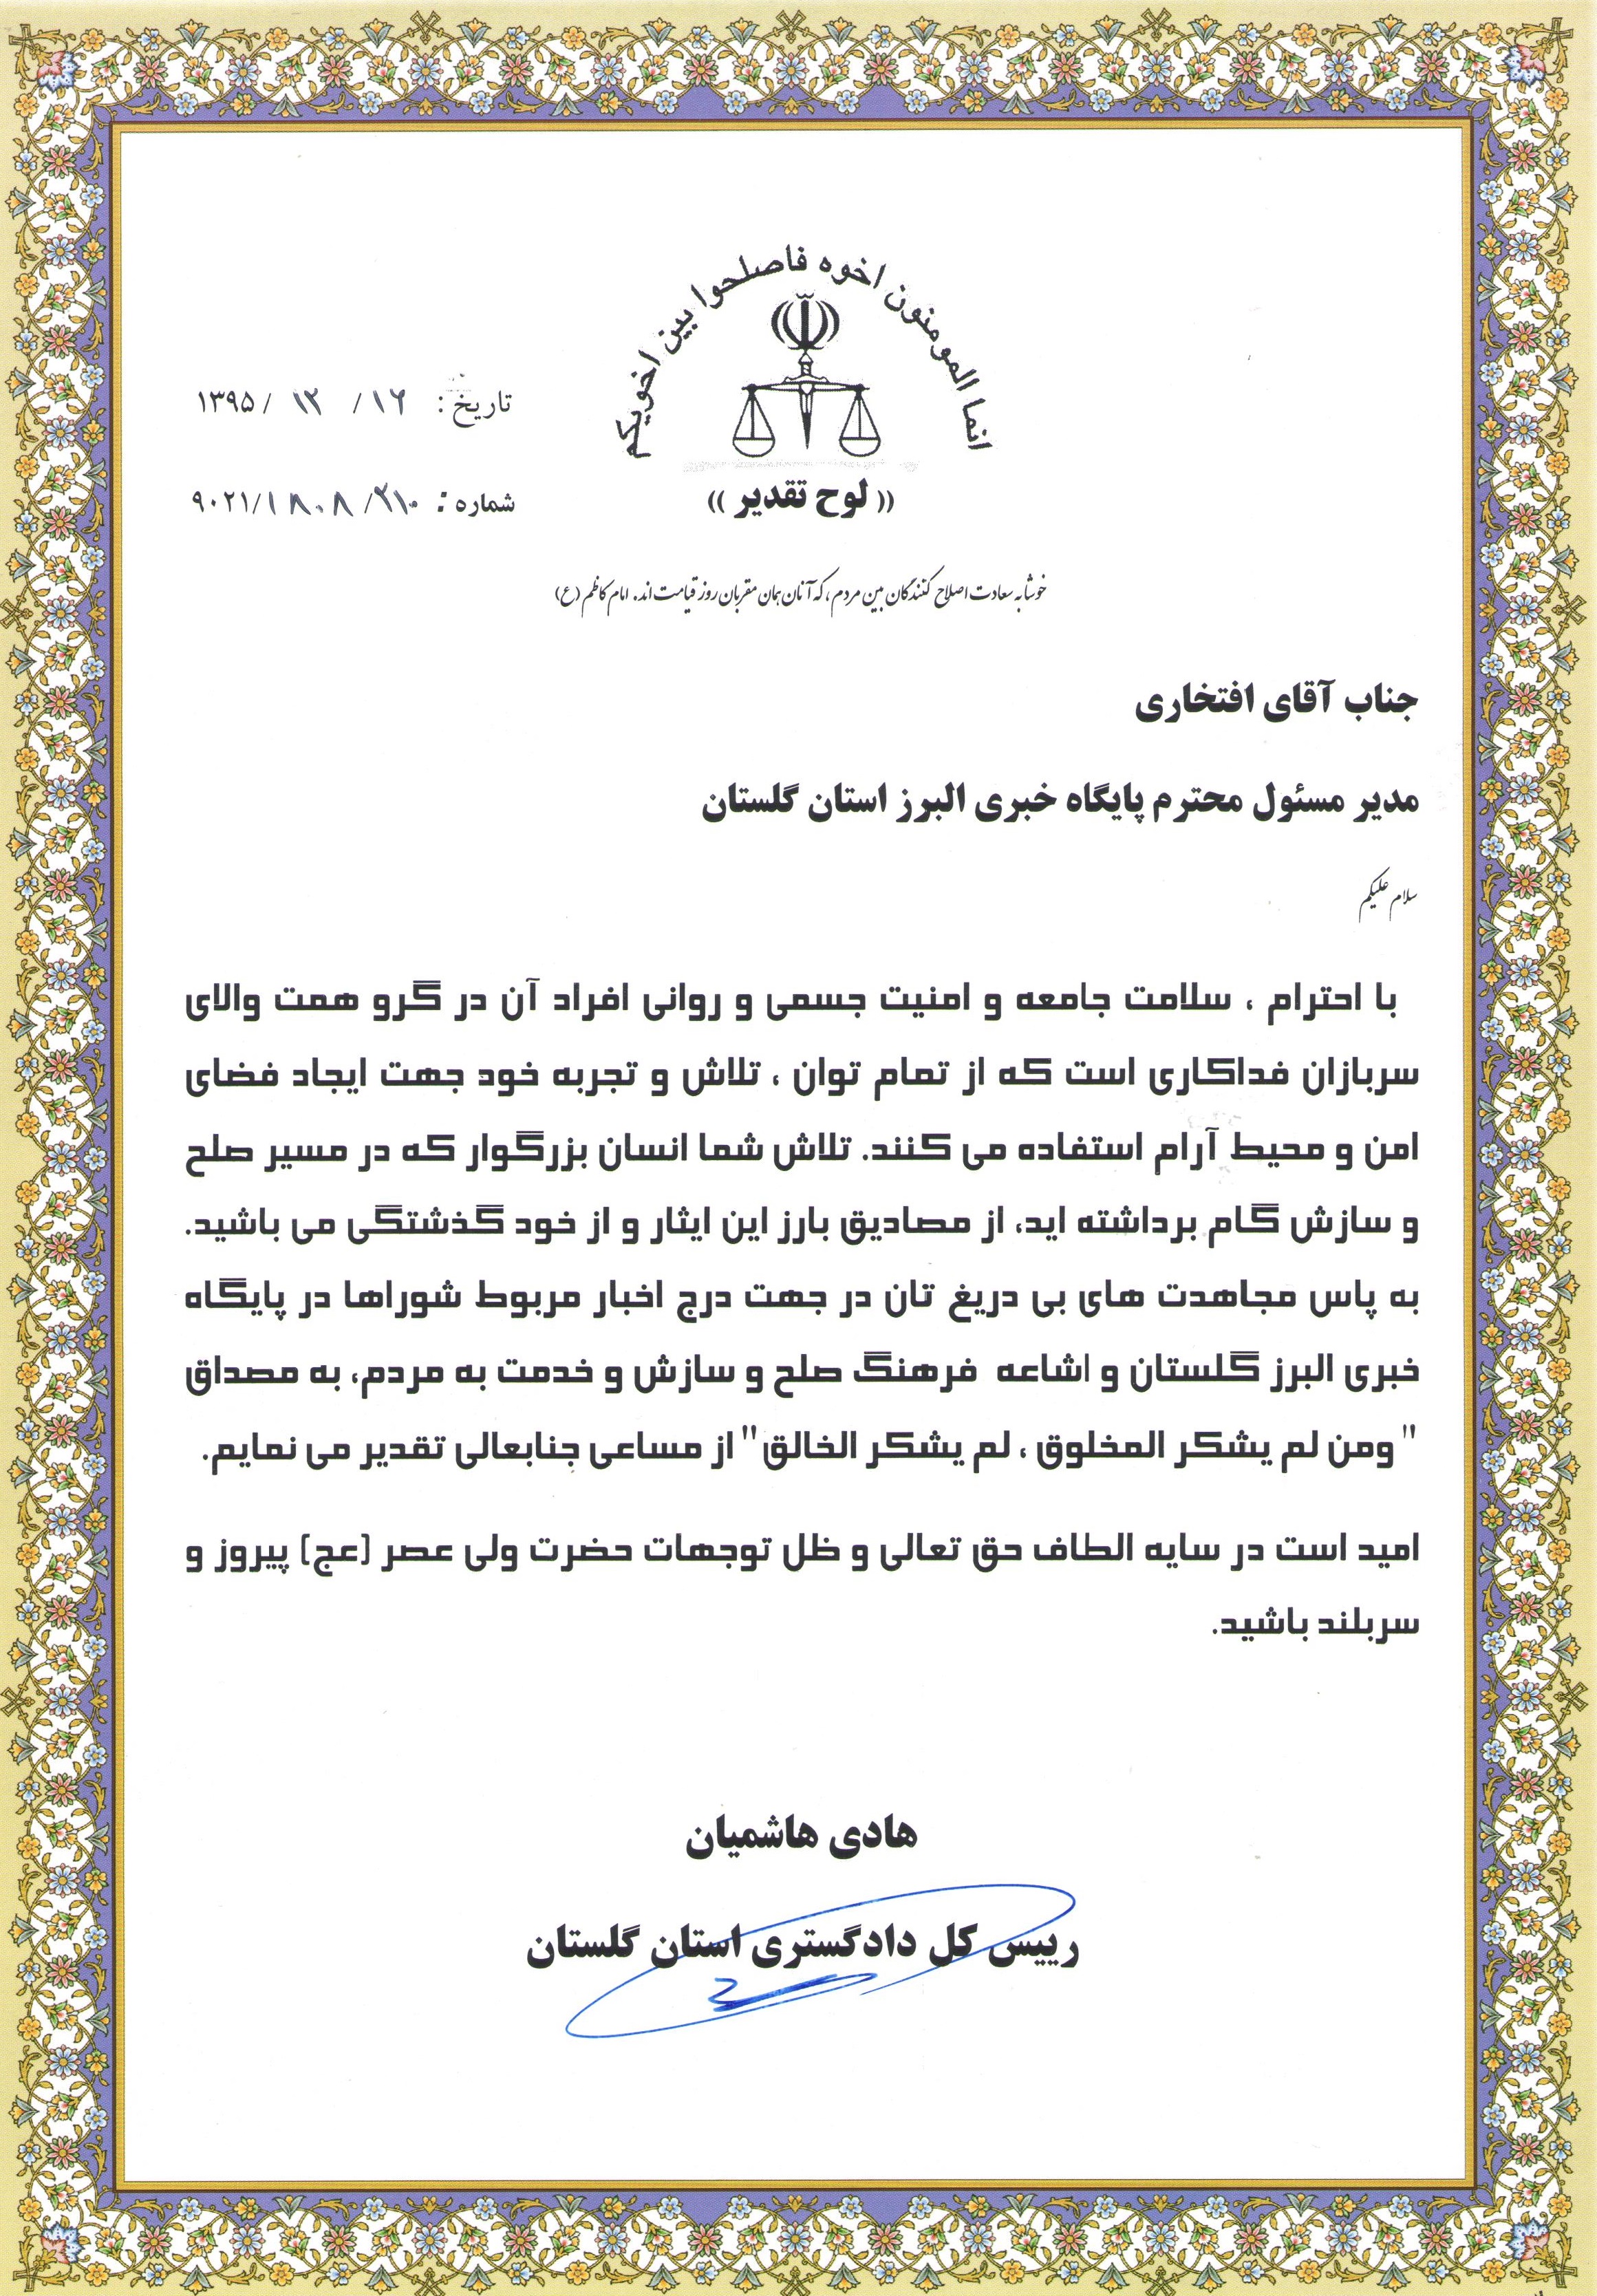 انما المومنون اخوه فاصلحوا بین اخویکم
تاریخ : ۱۶ / ۱۲ / ۱۳۹۵
شماره : ۹۰۲۱/۱۸۰۸/۲۱۰
(( لوح تقدیر ))
خوشا به سعادت اصلاح کنندگان بین مردم، که آنان همان مقربان روز قیامت اند. امام کاظم (ع)
جناب آقای افتخاری
مدیر مسئول محترم پایگاه خبری البرز استان گلستان
سلام علیکم
با احترام ، سلامت جامعه و امنیت جسمی و روانی افراد آن در گرو همت والای
سربازان فداکاری است که از تمام توان ، تلاش و تجربه خود جهت ایجاد فضای
امن و محیط آرام استفاده می کنند. تلاش شما انسان بزرگوار که در مسیر صلح
و سازش گام برداشته اید، از مصادیق بارز این ایثار و از خود گذشتگی می باشید.
به پاس مجاهدت های بی دریغ تان در جهت درج اخبار مربوط شوراها در پایگاه
خبری البرز گلستان و اشاعه فرهنگ صلح و سازش و خدمت به مردم، به مصداق
" ومن لم یشکر المخلوق ، لم یشکر الخالق" از مساعی جنابعالی تقدیر می نمایم.
امید است در سایه الطاف حق تعالی و ظل توجهات حضرت ولی عصر (عج) پیروز و
سربلند باشید.
هادی هاشمیان
رییس کل دادگستری استان گلستان